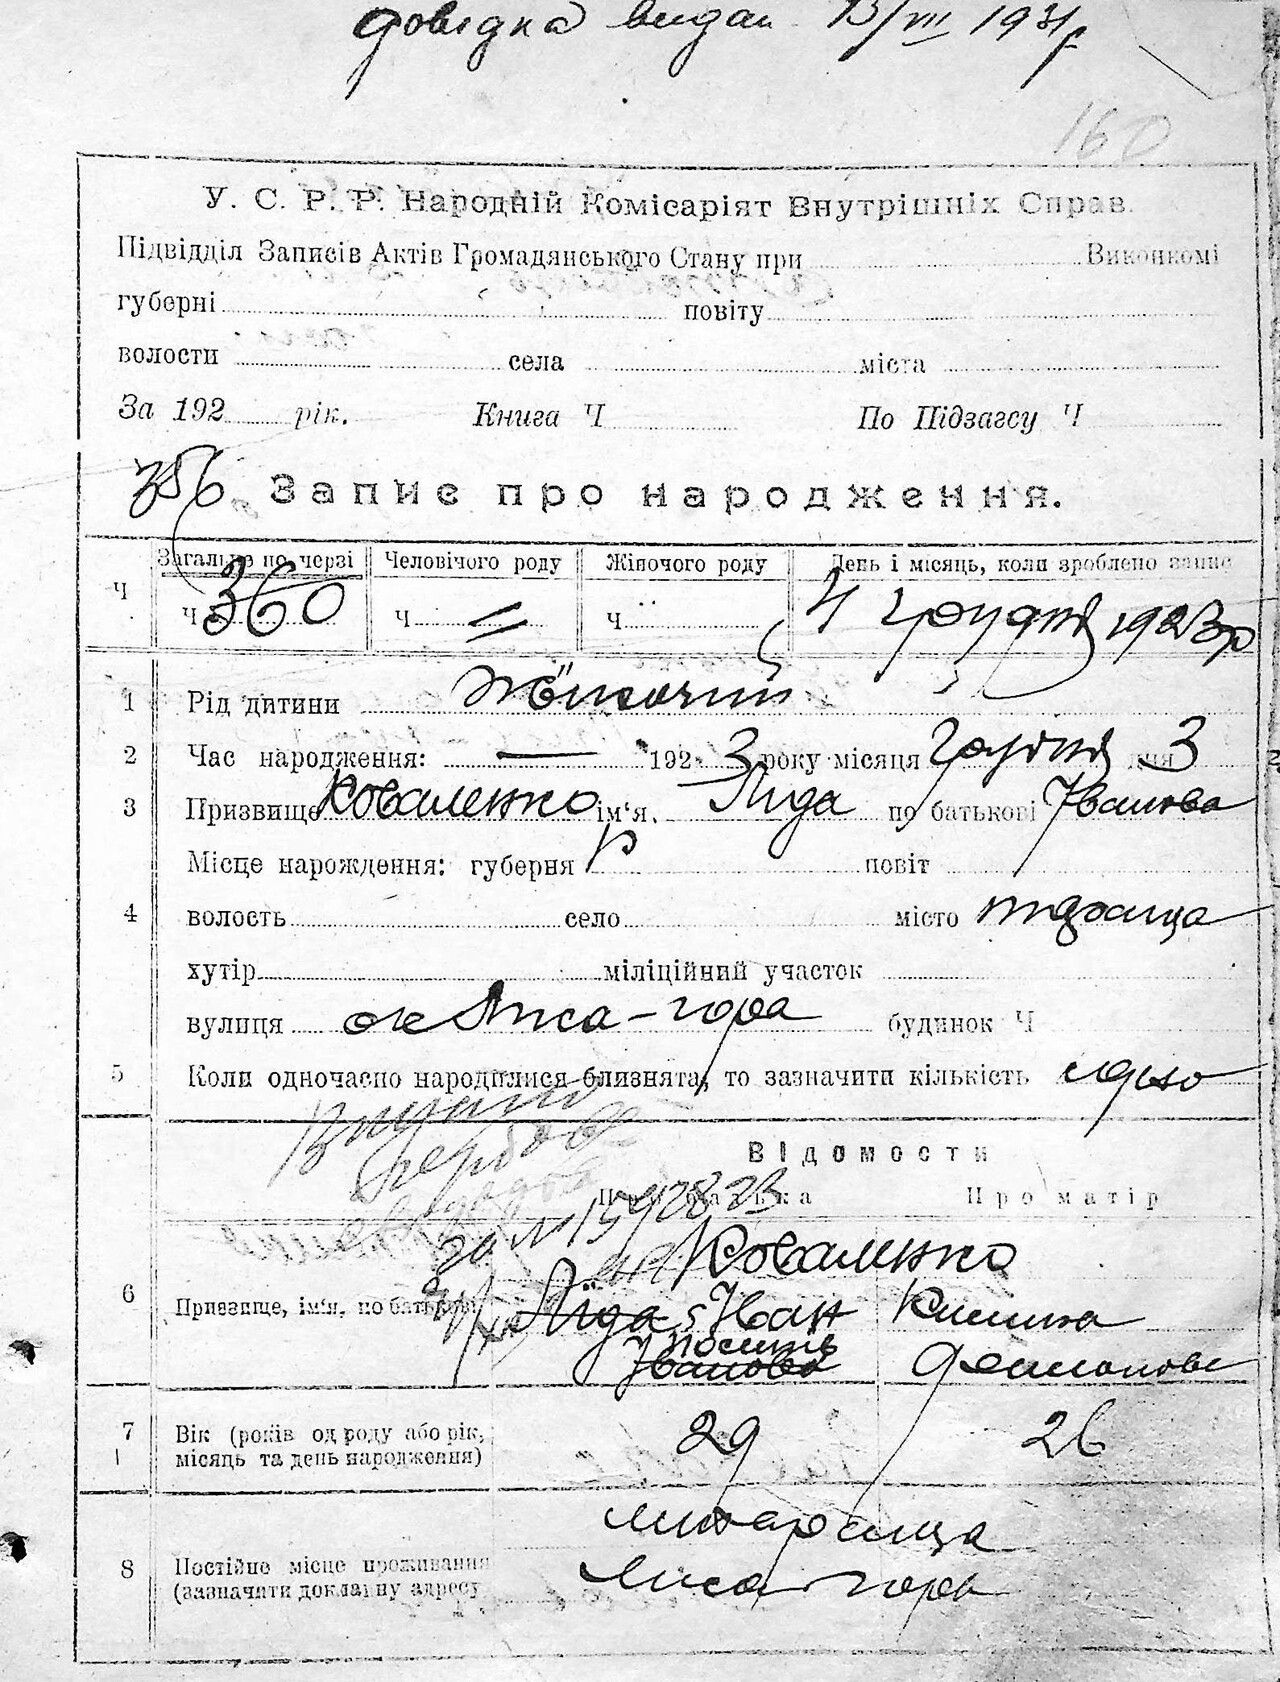 довідка видан 13/VIII 1931р.
160
У. С. Р. Р. Народній Комісаріят Внутрішніх Справ.
Підвідділ Записів Актів Громадянського Стану при Виконкомі
губерні повіту
волости села міста
За 192 рік. Книга Ч По Підзагсу Ч
356 Запис про народження.
Загальне по черзі Человічого роду Жіночого роду День і місяць, коли зроблено запис
Ч Ч 360 Ч " Ч 4 грудня 1923р
1 Рід дитини Жіночий
2 Час народження: — 1923 року місяця грудня дня 3
3 Призвище Коваленко ім'я. Ліда по батькові Іванова
Місце народження: губерня повіт
4 волость село місто
хутір міліційний участок
вулиця Лиса-гора будинок Ч
5 Коли одночасно народилися близнята, то зазначити кількість одно
Відомости
Про батька Про матір
Коваленко
6 Призвище, ім'я, по батькові Ліда Іван
Іванова
7 Вік (років од роду або рік, 29 26
місяць та день народження)
8 Постійне місце проживання
(зазначити докладну адресу Лиса гора